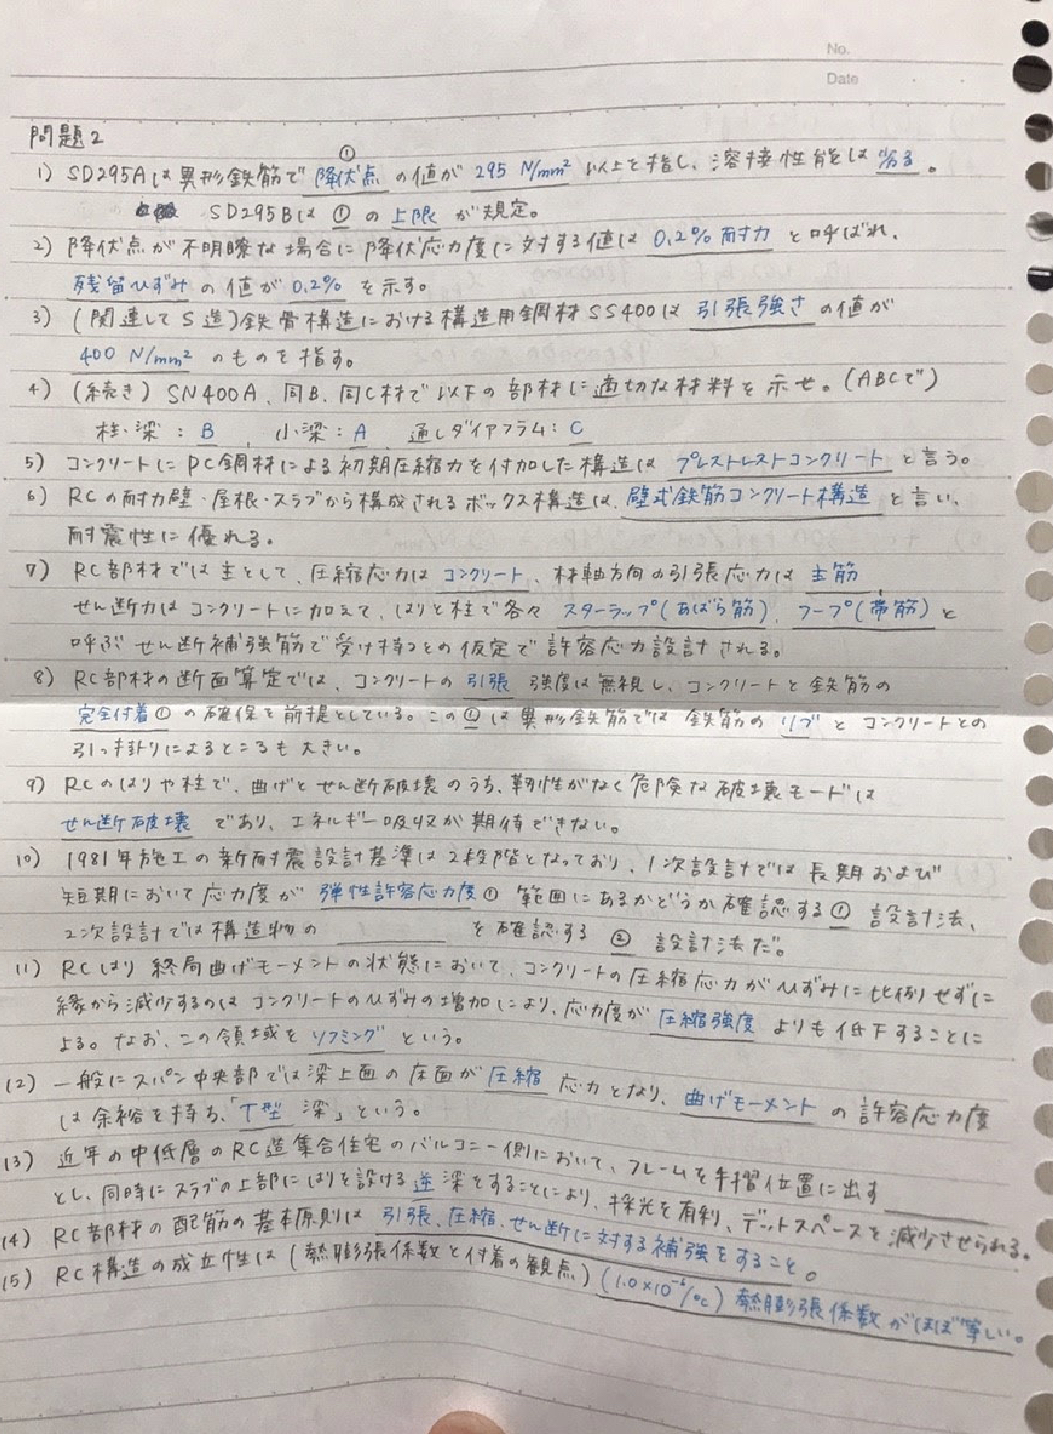 No.
Date
問題2
①
1) SD295Aは異形鉄筋で降伏点の値が295 N/mm² 以上を指し、溶接性能は劣る。
SD295Bは①の上限が規定。
2) 降伏点が不明瞭な場合に降伏応力度に対する値は0.2%耐力と呼ばれ、
残留ひずみの値が0.2%を示す。
3) (関連してS造)鉄骨構造における構造用鋼材SS400は引張強さの値が
400 N/mm² のものを指す。
4) (続き) SN400A、同B、同C材で以下の部材に適切な材料を示せ。(ABCで)
柱・梁: B 、小梁: A 通しダイアフラム: C
5) コンクリートにPC鋼材による初期圧縮力を付加した構造はプレストレストコンクリートと言う。
6) RCの耐力壁・屋根・スラブから構成されるボックス構造は、壁式鉄筋コンクリート構造と言い、
耐震性に優れる。
7) RC部材では主として、圧縮応力はコンクリート、材軸方向の引張応力は主筋
せん断力はコンクリートに加えて、はりと柱で各々スターラップ(あばら筋)、フープ(帯筋)と
呼ぶせん断補強筋で受け持つとの仮定で許容応力設計される。
8) RC部材の断面算定では、コンクリートの引張強度は無視し、コンクリートと鉄筋の
完全付着①の確保を前提としている。この①は異形鉄筋では鉄筋のリブとコンクリートとの
引っ掛りによるところも大きい。
9) RCのはりや柱で、曲げとせん断破壊のうち、靭性がなく危険な破壊モードは
せん断破壊であり、エネルギー吸収が期待できない。
10) 1981年施工の新耐震設計基準は2段階となっており、1次設計では長期および
短期において応力度が弾性許容応力度①範囲にあるかどうか確認する①設計法、
2次設計では構造物の を確認する②設計法だ。
11) RCはり終局曲げモーメントの状態において、コンクリートの圧縮応力がひずみに比例せずに
縁から減少するのはコンクリートのひずみの増加により、応力度が圧縮強度よりも低下することに
よる。なお、この領域をソフニングという。
12) 一般にスパン中央部では梁上面の床面が圧縮応力となり、曲げモーメントの許容応力度
は余裕を持ち、「T型梁」という。
13) 近年の中低層のRC造集合住宅のバルコニー側において、フレームを手摺位置に出す
とし、同時にスラブの上部にはりを設ける逆梁とすることにより、採光を有利、デットスペースを減少させられる。
14) RC部材の配筋の基本原則は引張、圧縮、せん断に対する補強をすること。
15) RC構造の成立性は(熱膨張係数と付着の観点)(1.0×10⁻⁵/℃) 熱膨張係数がほぼ等しい。